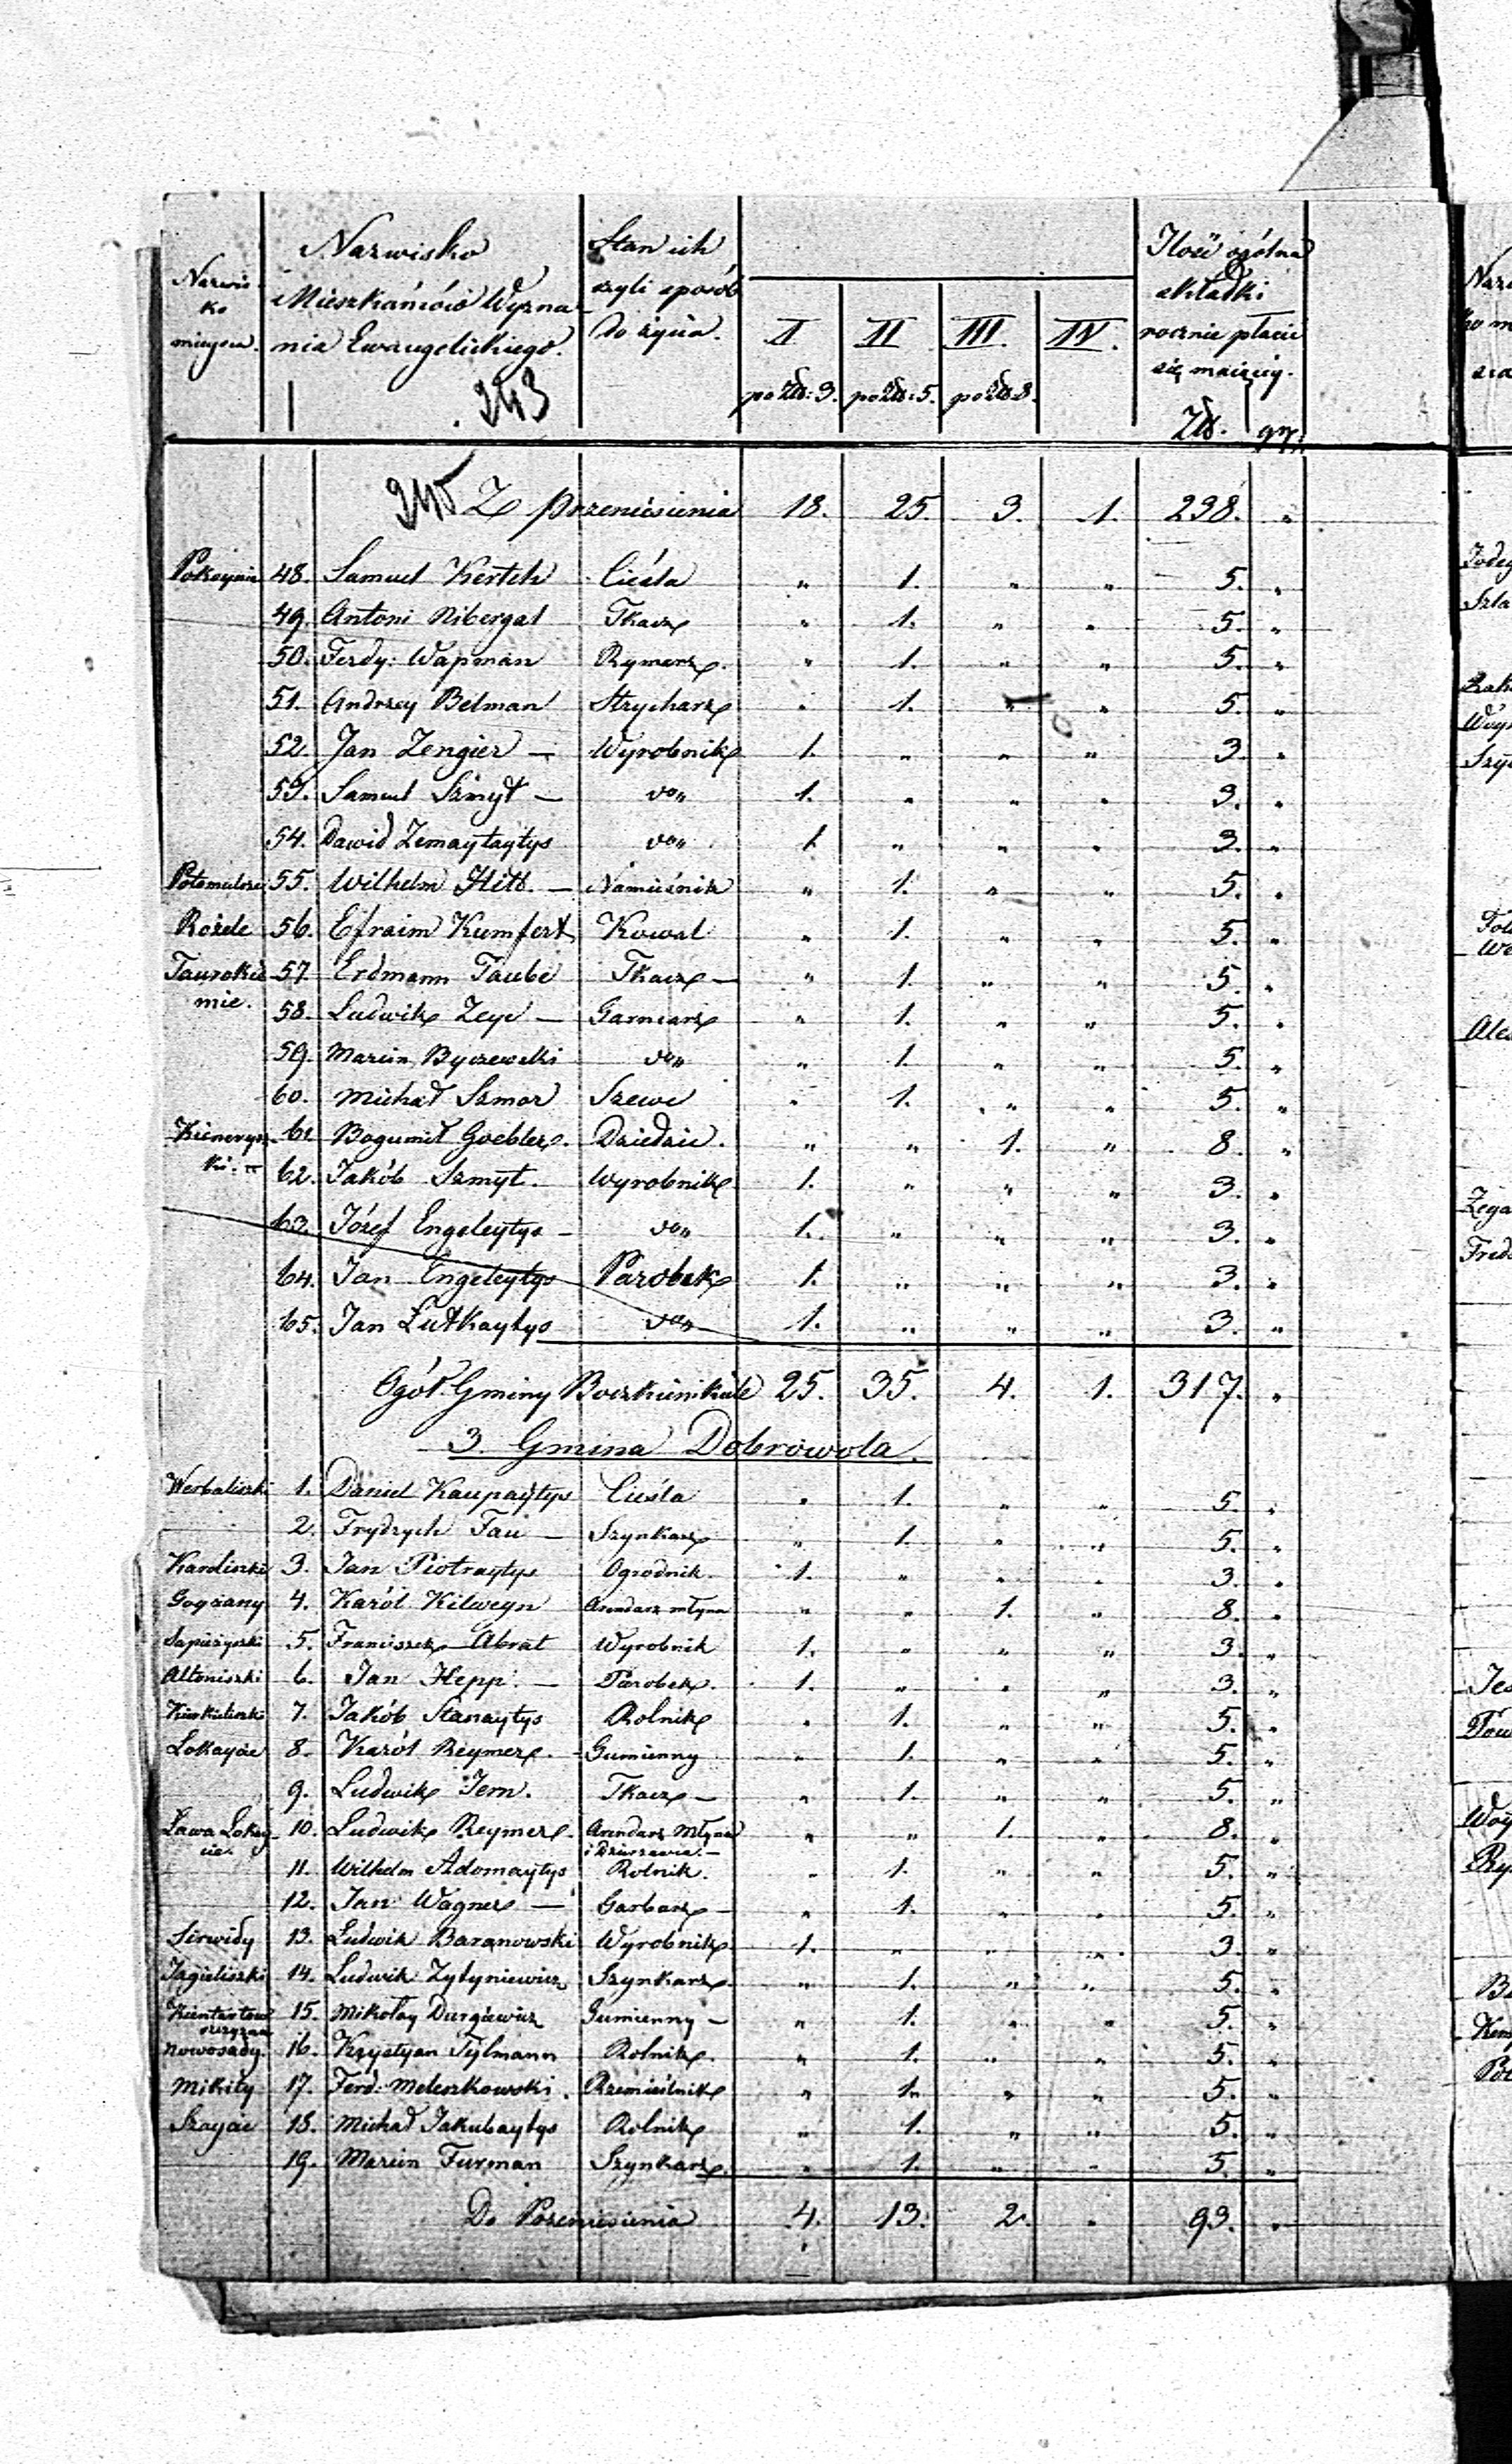 Nazwis-
ko
miejsca.
Nazwisko
Mieszkańców Wyzna-
nia Ewangelickiego.
243
Stan ich
czyli sposób
do życia.
I II III. IV.
po Złł: 3. po Złł: 5. po Złł: 8.
Ilość ogólna
składki
rocznie płacić
się maiącéy.
Złł. gr.
245 Z przeniesienia 18. 25. 3. 1. 238. "
48. Samuel Kertch Cieśla " 1. " " 5. "
49. Antoni Nibergal Tkacz " 1. " " 5. "
50. Ferdy: Wapman Rymarz. " 1. " " 5. "
51. Andrzey Belman Strycharz " 1. " " 5. "
52. Jan Zengier — Wyrobnik 1. " " " 3. "
53. Samuel Szmyt — do" 1. " " " 3. "
54. Dawid Zemaytaytys do" 1 " " " 3. "
55. Wilhelm — Namieśnik " 1. " " 5. "
Rozele 56. Efraim Kumfert Kowal " 1. " " 5. "
Taurokie 57. Erdmann Taube Tkacz — " 1. " " 5. "
mie. 58. Ludwik Zeyc — Garncarz " 1. " " 5. "
59. Marcin Byczewski do" " 1. " " 5. "
60. Michał Szmor Szewc " 1. " " 5. "
61. Bogumił Goebler. Dziedzic. " " 1. " 8. "
62. Jakób Szmyt. Wyrobnik 1. " " " 3. "
63. Józef Engeleytys — do" 1. " " " 3. "
64. Jan Engeleytys Parobek 1. " " " 3. "
65. Jan Łutkaytys do" 1. " " " 3. "
Ogół Gminy 25. 35. 4. 1. 317. "
3. Gmina Dobrowola.
Werbaliszki 1. Daniel Kaupaytys Cieśla " 1. " " 5. "
2. Frydrych Fau — Szynkarz " 1. " " 5. "
Karoliszki 3. Jan Piotraytys Ogrodnik. 1. " " " 3. "
4. Karól Kilweyn Arendarz młyna " " 1. " 8. "
5. Franciszek Abrat Wyrobnik 1. " " " 3. "
Altoniszki 6. Jan Hepp. — Parobek. 1. " " " 3. "
7. Jakób Stanaytys Rolnik " 1. " " 5. "
Lokaycie 8. Karól Reymer. Gumienny " 1. " " 5. "
9. Ludwik Jern. Tkacz — " 1. " " 5. "
10. Ludwik Reymer. Arendarz Młyna " " 1. " 8. "
i Dzierzawca. —
11. Wilhelm Adomaytys Rolnik. " 1. " " 5. "
12. Jan Wagner — Garbarz — " 1. " " 5. "
Sirwidy 13. Ludwik Baranowski Wyrobnik 1. " " " 3. "
Jagieliszki 14. Ludwik Zytyniewicz Szynkarz. " 1. " " 5. "
15. Mikołay Durgiewicz Gumienny — " 1. " " 5. "
Nowosady. 16. Krystyan Tylmann Rolnik. " 1. " " 5. "
Mikity 17. Ferd: Meleszkowski. Rzemieślnik " 1. " " 5. "
Szaycie 18. Michał Jakubaytys Rolnik " 1. " " 5. "
19. Marcin Furman Szynkarz. " 1. " " 5. "
Do Przeniesienia 4. 13. 2. " 93. "